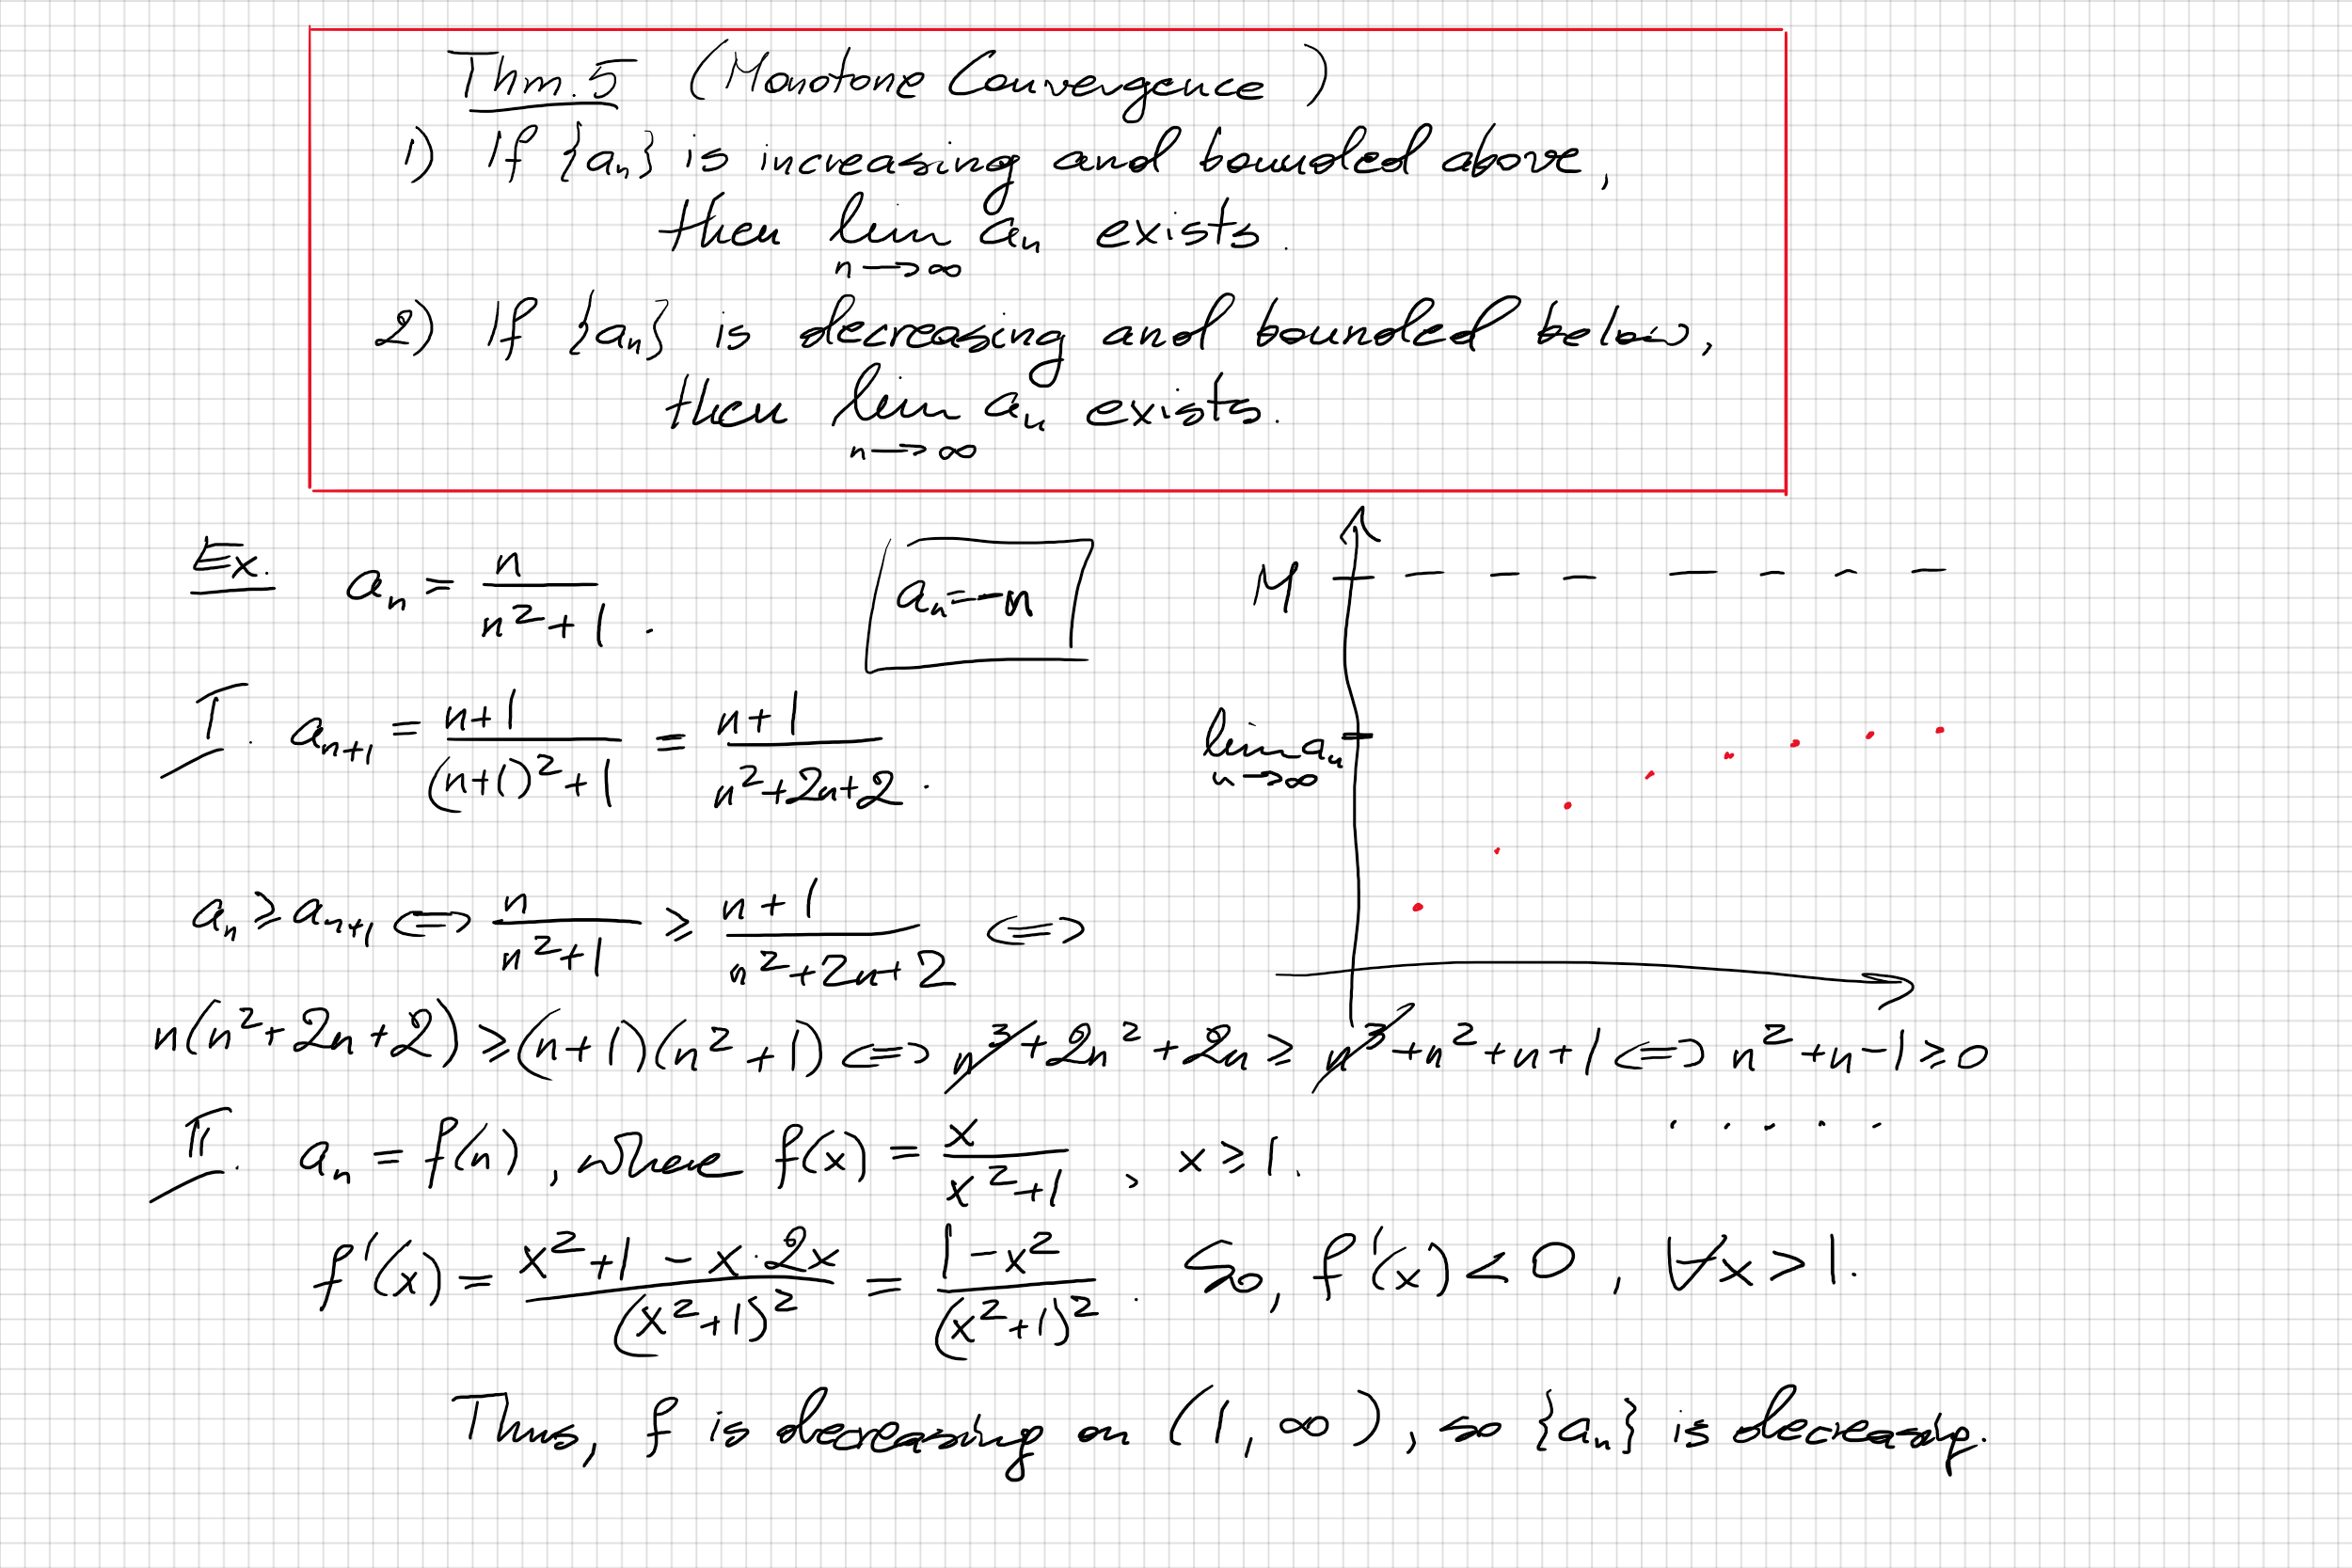 Thm. 5 (Monotone Convergence)
1) If {aₙ} is increasing and bounded above,
then lim aₙ exists.
n→∞
2) If {aₙ} is decreasing and bounded below,
then lim aₙ exists.
n→∞
Ex. aₙ = n/(n²+1).
aₙ = -n
M
lim aₙ
n→∞
I. aₙ₊₁ = (n+1)/((n+1)²+1) = (n+1)/(n²+2n+2).
aₙ ≥ aₙ₊₁ ⟺ n/(n²+1) ≥ (n+1)/(n²+2n+2) ⟺
n(n²+2n+2) ≥ (n+1)(n²+1) ⟺ n³+2n²+2n ≥ n³+n²+n+1 ⟺ n²+n-1 ≥ 0
.....
II. aₙ = f(n), where f(x) = x/(x²+1), x ≥ 1.
f'(x) = (x²+1 - x·2x)/(x²+1)² = (1-x²)/(x²+1)². So, f'(x) < 0, ∀x > 1.
Thus, f is decreasing on (1, ∞), so {aₙ} is decreasing.